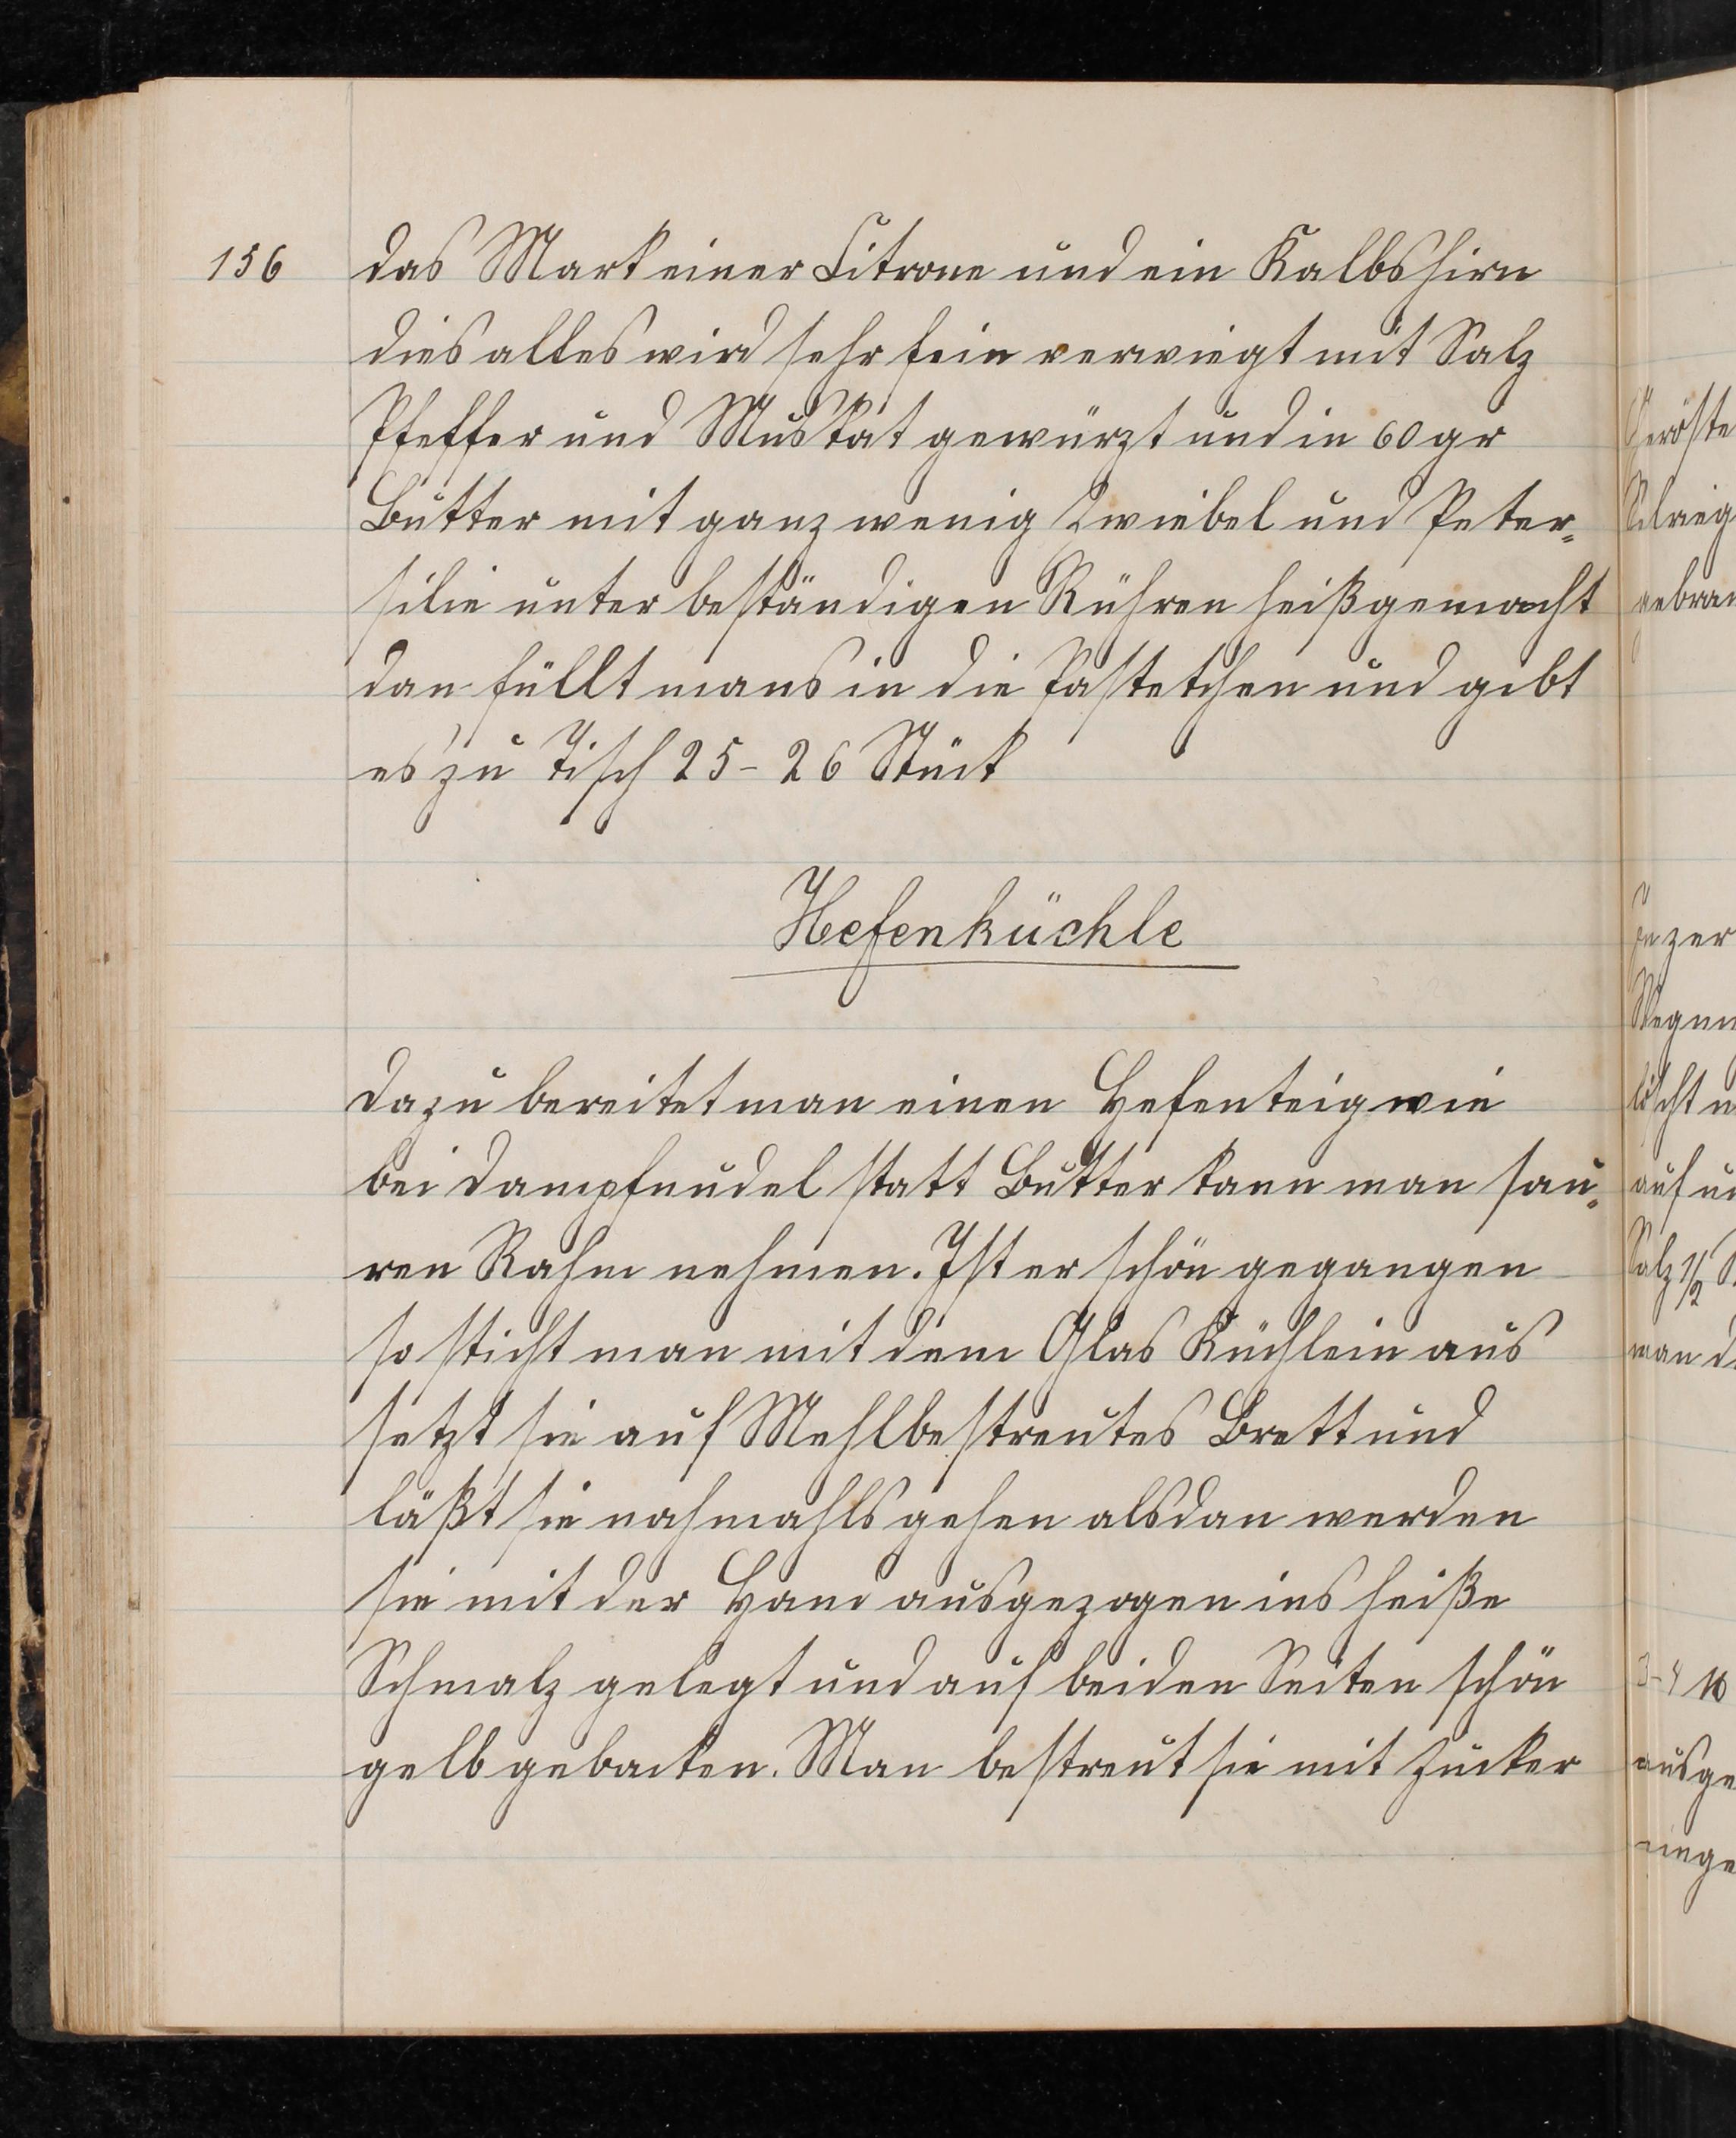 156
das Mark einer Citrone und ein Kalbshirn
dies alles wird sehr fein verwiegt mit Salz
Pfeffer und Muskat gewürzt und in 60 gr
Butter mit ganz wenig Zwiebel und Peter=
silie unter beständigen Rühren heißgemacht
dan füllt mans in die Pastetchen und gibt
es zu Tisch 25 - 26 Stück
Hefenküchle
Dazu bereitet man einen Hefenteig wie
bei Dampfnudel statt Butter kann man sau=
ren Rahm nehmen. Ist er schön gegangen
so sticht man mit dem Glas Küchlein aus
setzt sie auf Mehlbestreutes Brett und
läßt sie nochmahls gehen alsdan werden
sie mit der Hand ausgezogen ins heiße
Schmalz gelegt und auf beiden Seiten schön
gelb gebacken. Man bestreut sie mit Zucker